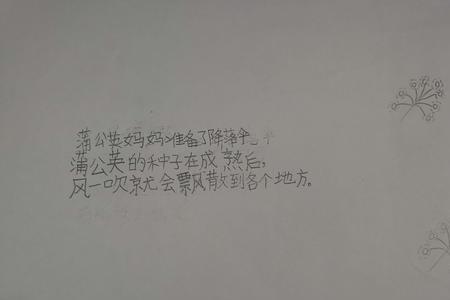 蒲公英妈妈准备了降落伞
蒲公英的种子在成熟后,
风一吹就会飘散到各个地方。